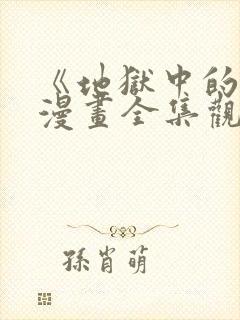 《地獄中的
漫畫全集觀
孫肖萌